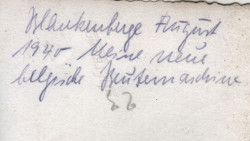 Blankenberge August
1940 Meine neue
belgische Beutemaschine